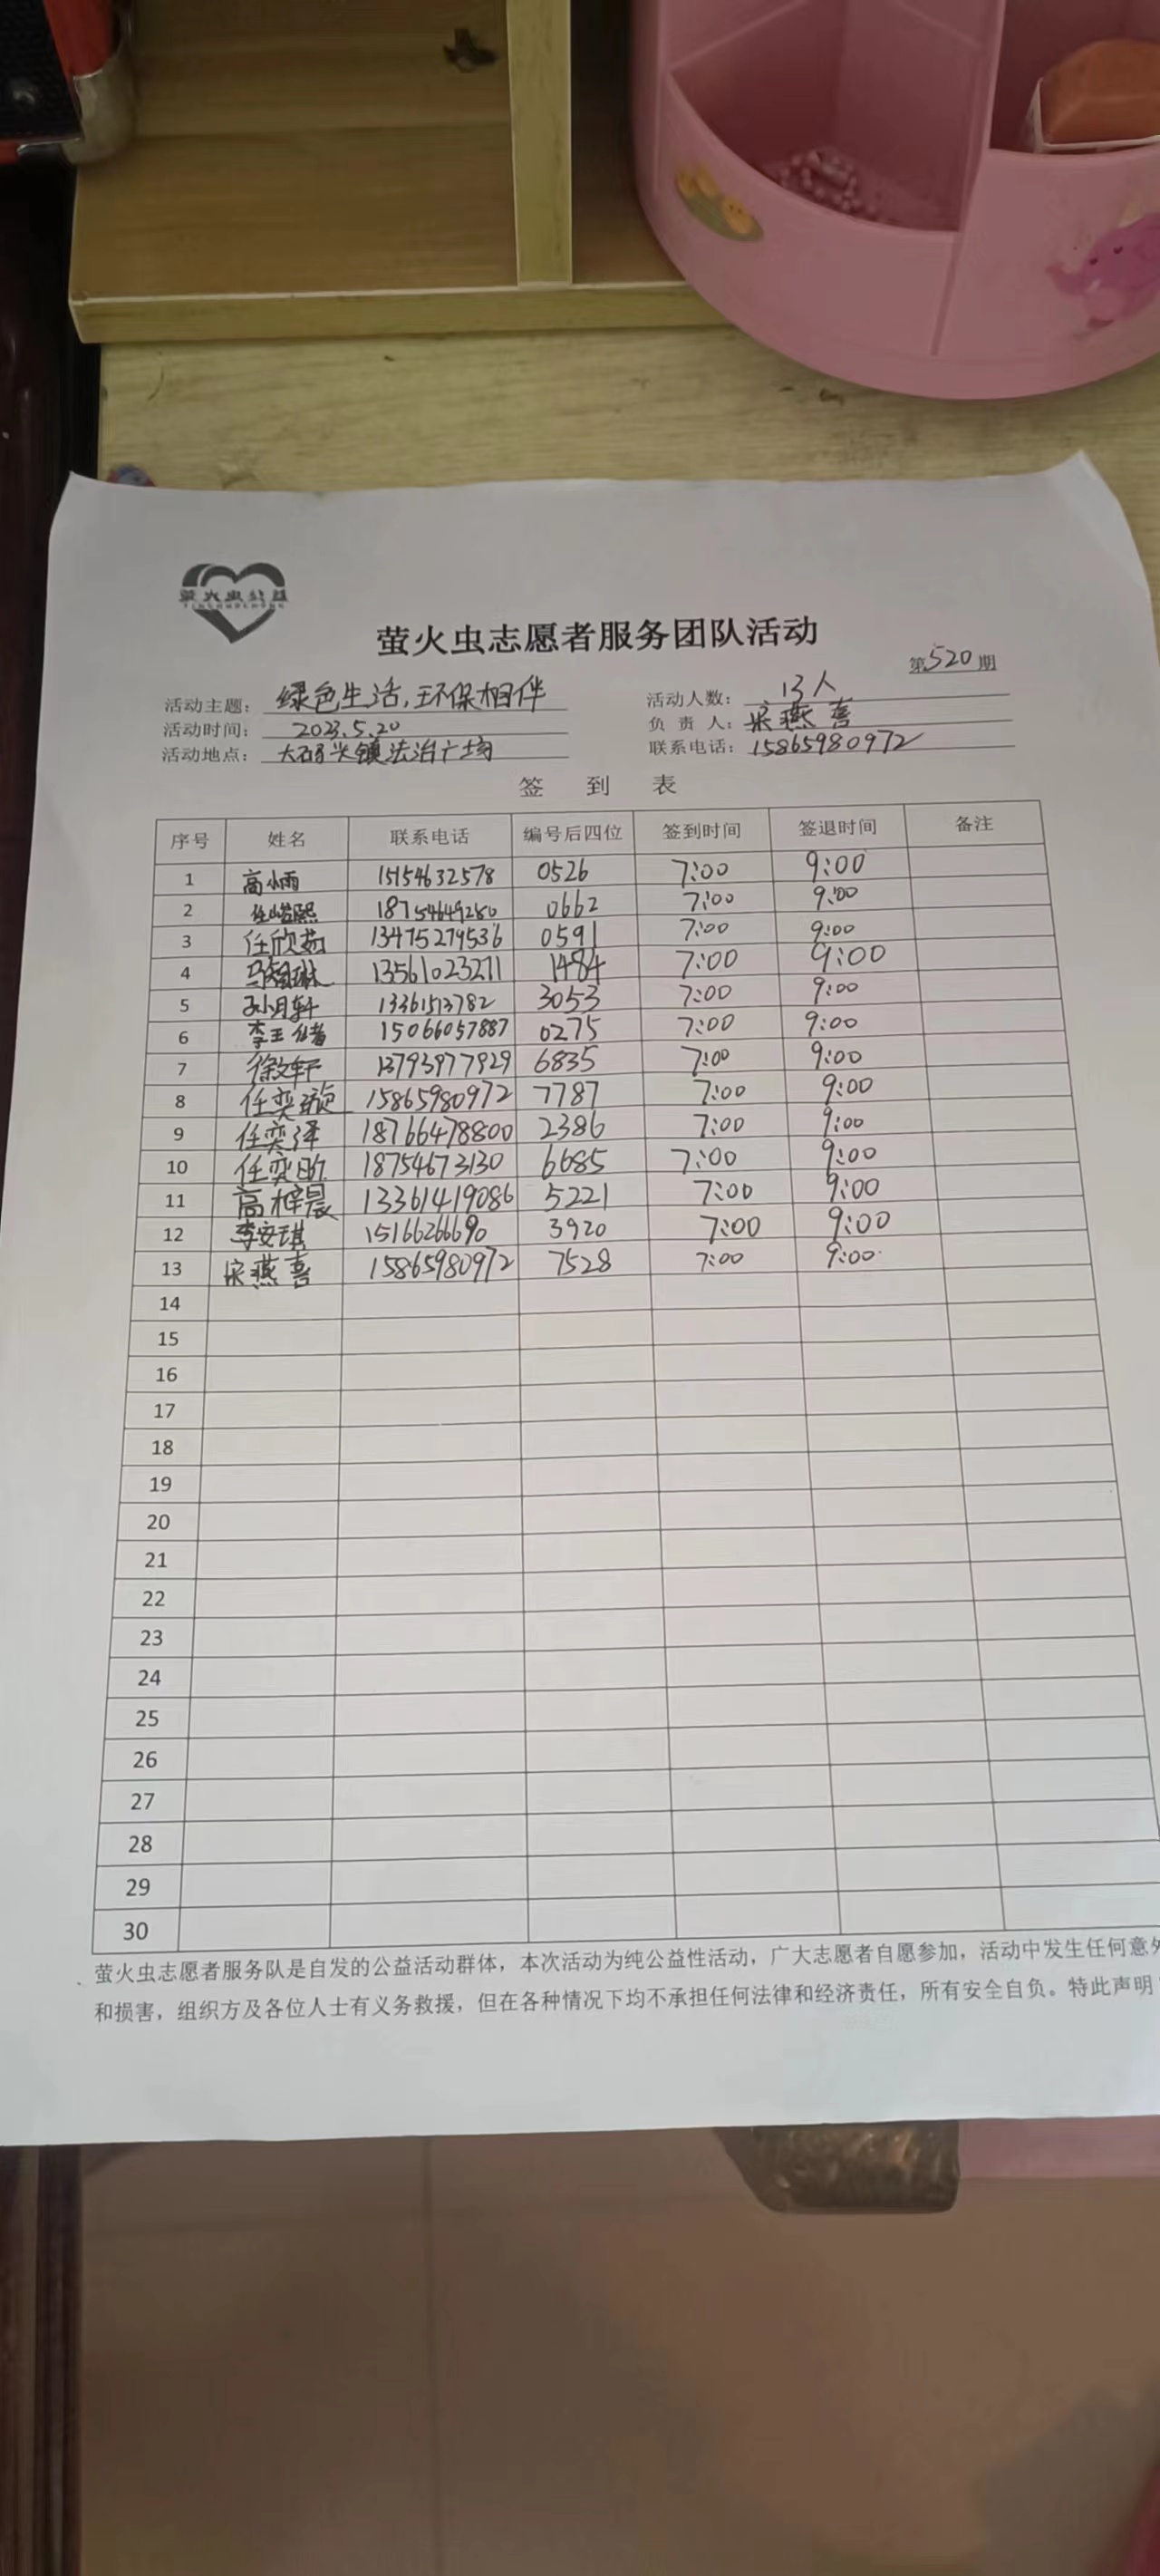 萤火虫公益
萤火虫志愿者服务团队活动
第520期
活动主题：绿色生活，环保相伴 活动人数：13人
活动时间：2023.5.20 负责人：宋燕喜
活动地点：大码头镇法治广场 联系电话：15865980972
签到表
序号 姓名 联系电话 编号后四位 签到时间 签退时间 备注
1 高小雨 15154632578 0526 7:00 9:00
2 18754649280 0662 7:00 9:00
3 任欣茹 13475279536 0591 7:00 9:00
4 13561023211 1484 7:00 9:00
5 孙月轩 13361513782 3053 7:00 9:00
6 15066057887 0275 7:00 9:00
7 徐文轩 13793977929 6835 7:00 9:00
8 任奕璇 15865980972 7787 7:00 9:00
9 任奕泽 18766478800 2386 7:00 9:00
10 任奕昕 18754673130 6685 7:00 9:00
11 高梓晨 13361419086 5221 7:00 9:00
12 李安琪 15166266690 3920 7:00 9:00
13 宋燕喜 15865980972 7528 7:00 9:00
14
15
16
17
18
19
20
21
22
23
24
25
26
27
28
29
30
萤火虫志愿者服务队是自发的公益活动群体，本次活动为纯公益性活动，广大志愿者自愿参加，活动中发生任何意外
和损害，组织方及各位人士有义务救援，但在各种情况下均不承担任何法律和经济责任，所有安全自负。特此声明